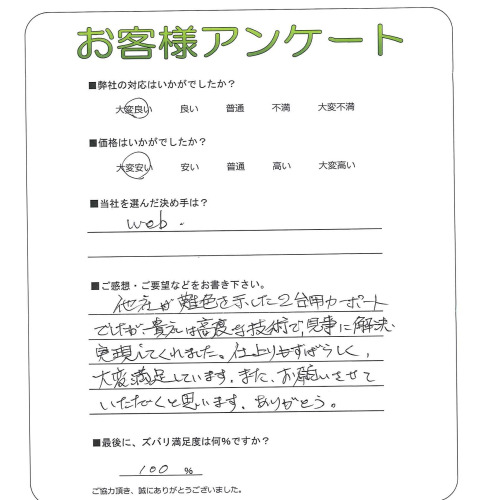 お客様アンケート
■弊社の対応はいかがでしたか？
大変良い 良い 普通 不満 大変不満
■価格はいかがでしたか？
大変安い 安い 普通 高い 大変高い
■当社を選んだ決め手は？
web.
■ご感想・ご要望などをお書き下さい。
他社が難色を示した2台用カーポート
でしたが、貴社は高度な技術で、見事に解決、
実現してくれました。仕上りもすばらしく、
大変満足しています。また、お願いさせて
いただくと思います。ありがとう。
■最後に、ズバリ満足度は何％ですか？
100 ％
ご協力頂き、誠にありがとうございました。